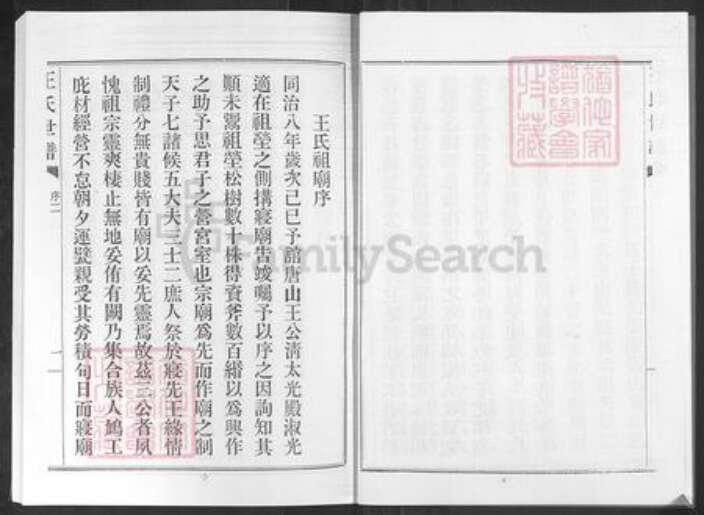 王氏祖廟序
同治八年歲次己巳予館唐山王公淸太光殿淑光
適在祖塋之側搆寢廟告竣囑予以序之因詢知其
顚末鬻祖塋松樹數十株得資斧數百緡以爲興作
之助予思君子之營宮室也宗廟爲先而作廟之制
天子七諸候五大夫三士二庶人祭於寢先王緣情
制禮分無貴賤皆有廟以妥先靈焉故茲三公者夙
愧祖宗靈爽棲止無地妥侑有闕乃集合族人鳩工
庇材經營不怠朝夕運甓親受其勞積旬日而寢廟
王氏世譜
序二
一
FamilySearch